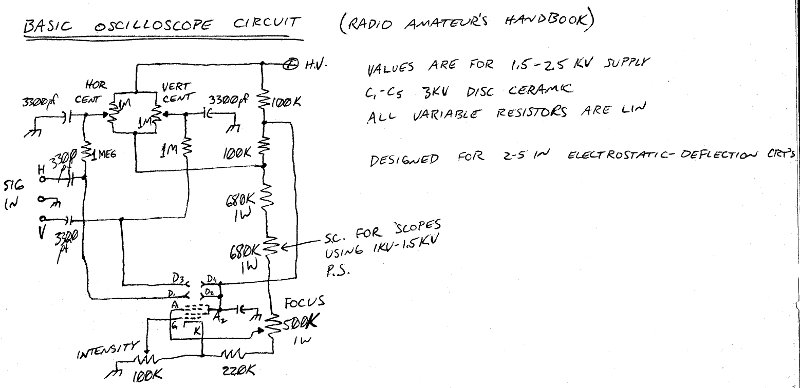 BASIC OSCILLOSCOPE CIRCUIT (RADIO AMATEUR'S HANDBOOK)
⊕ H.V.
VALUES ARE FOR 1.5-2.5 KV SUPPLY
C1-C5 3KV DISC CERAMIC
ALL VARIABLE RESISTORS ARE LIN
DESIGNED FOR 2-5 IN ELECTROSTATIC-DEFLECTION CRT'S
HOR
CENT
VERT
CENT
3300pf
3300pf
1M
1M
100K
1MEG
1M
100K
3300
pf
H
SIG
IN
V
3300
pf
680K
1W
680K
1W
S.C. FOR 'SCOPES
USING 1KV-1.5KV
P.S.
D3
D1
D2
A1
A2
G
K
FOCUS
500K
1W
INTENSITY
100K
220K